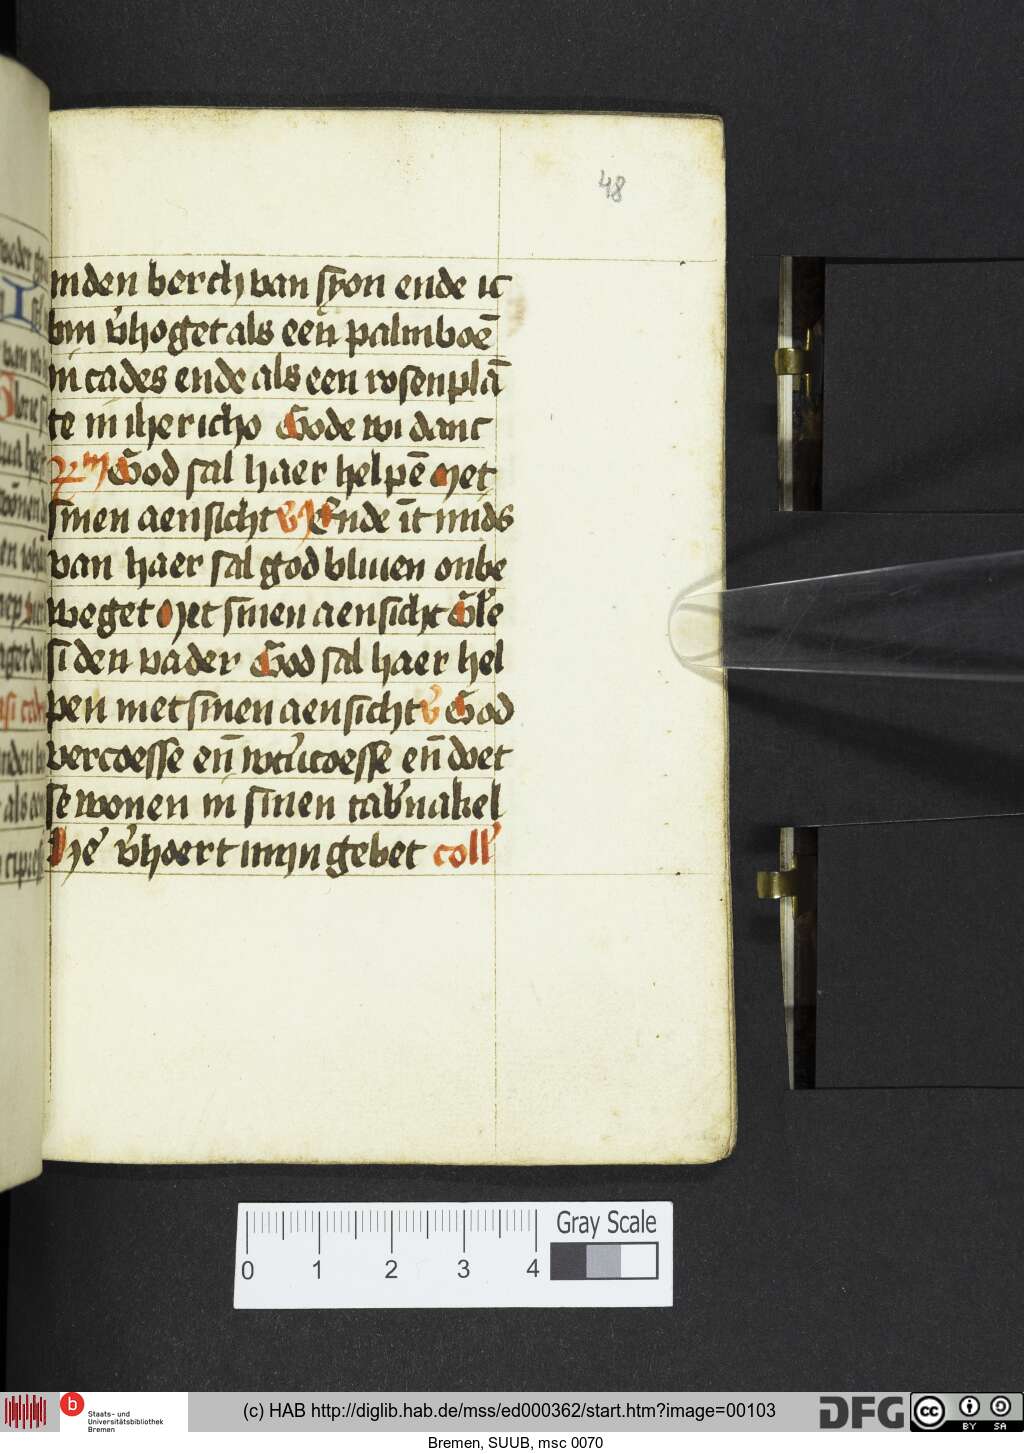 48
in den berch van syon ende ic
bin v̾hoget als een palmboē
in cades ende als een rosenplā
te in ihericho Gode wi danc
God sal haer helpē Met
sinen aensicht Ende īt mids
van haer sal god bliuen onbe
weget Met sinen aensicht Gl̾e
si den vader God sal haer hel
pen met sinen aensicht v̾ God
vercoesse en̄ wt͛coesse en̄ doet
se wonen in sinen tab̾nakel
He͛ v̾hoert mijn gebet coll͛
0 1 2 3 4 Gray Scale
b Staats- und
Universitätsbibliothek
Bremen
(c) HAB http://diglib.hab.de/mss/ed000362/start.htm?image=00103
DFG cc BY SA
Bremen, SUUB, msc 0070